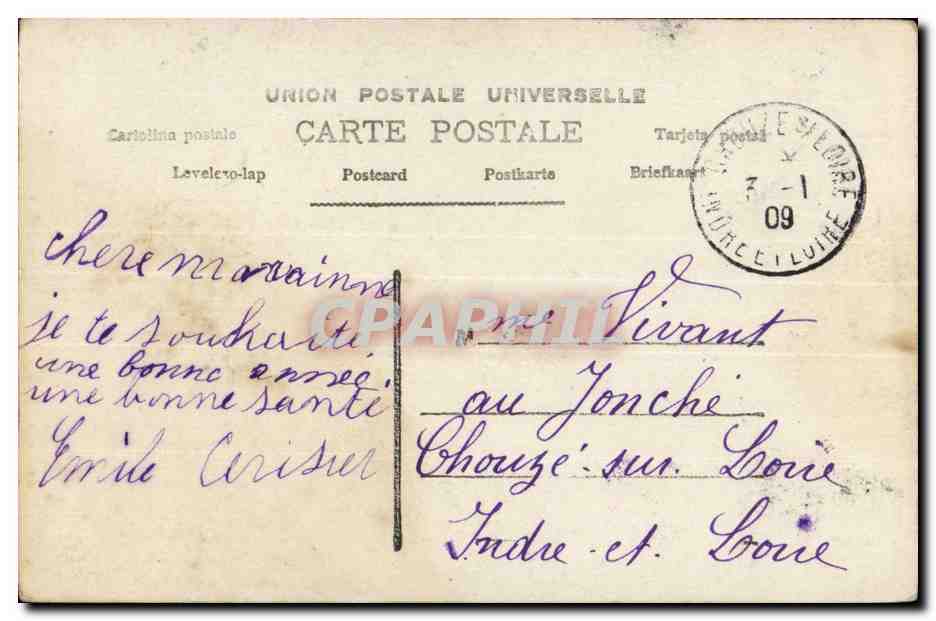 UNION POSTALE UNIVERSELLE
Cartolina postale CARTE POSTALE Tarjeta postal
Levelezo-lap Postcard Postkarte Briefkaart
CHOUZE S/ LOIRE
3 - 1
09
INDRE ET LOIRE
chere marainne
je te souhaite
une bonne année,
une bonne santé
Emile Cerisier
CPAPHIL
Mme Vivant
au Jonché
Chouzé-sur-Loire
Indre-et-Loire